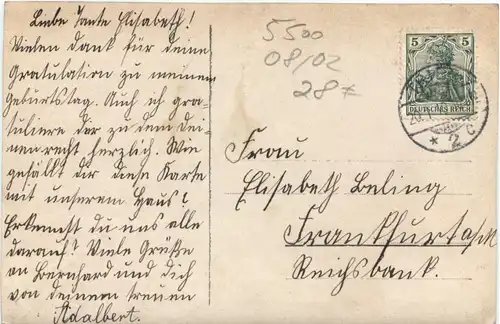 Liebe Tante Elisabeth!
Vielen Dank für deine
Gratulation zu meinem
Geburtstag. Auch ich gra-
tuliere dir zu dem Dei-
nen recht herzlich. Wie
gefällt dir diese Karte
mit unserem Haus?
Erkennst du uns alle
darauf? Viele Grüße
an Bernhard und dich
von deinem treuen
Adalbert.
5500
08/02
28
5 5
DEUTSCHES REICH
* 2 c
Frau
Elisabeth Beling
Frankfurt a/M
Reichsbank.